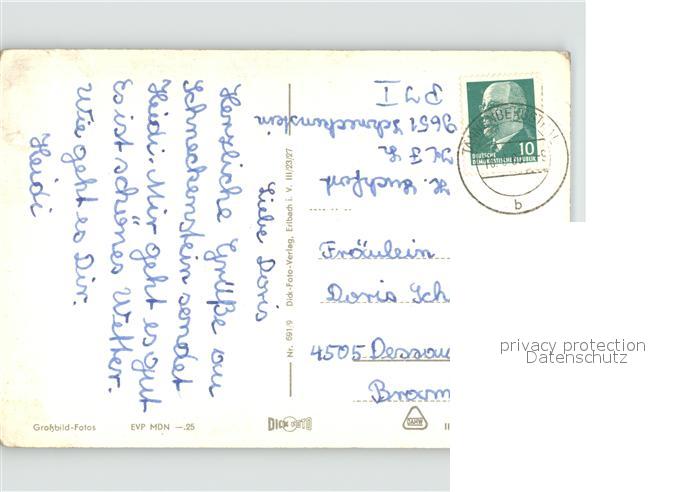 Liebe Doris
Herzliche Grüße aus
Schneckenstein sendet
Heidi. Mir geht es gut
Es ist schönes Wetter.
Wie geht es Dir.
Heidi
9651 Schneckenstein
Fräulein
Doris Sch
4505 Dessau
10
DEUTSCHE
DEMOKRATISCHE REPUBLIK
b
Nr. 691/9 Dick-Foto-Verlag, Erlbach i. V. III/23/27
Großbild-Fotos EVP MDN —.25
DICK FOTO
privacy protection
Datenschutz